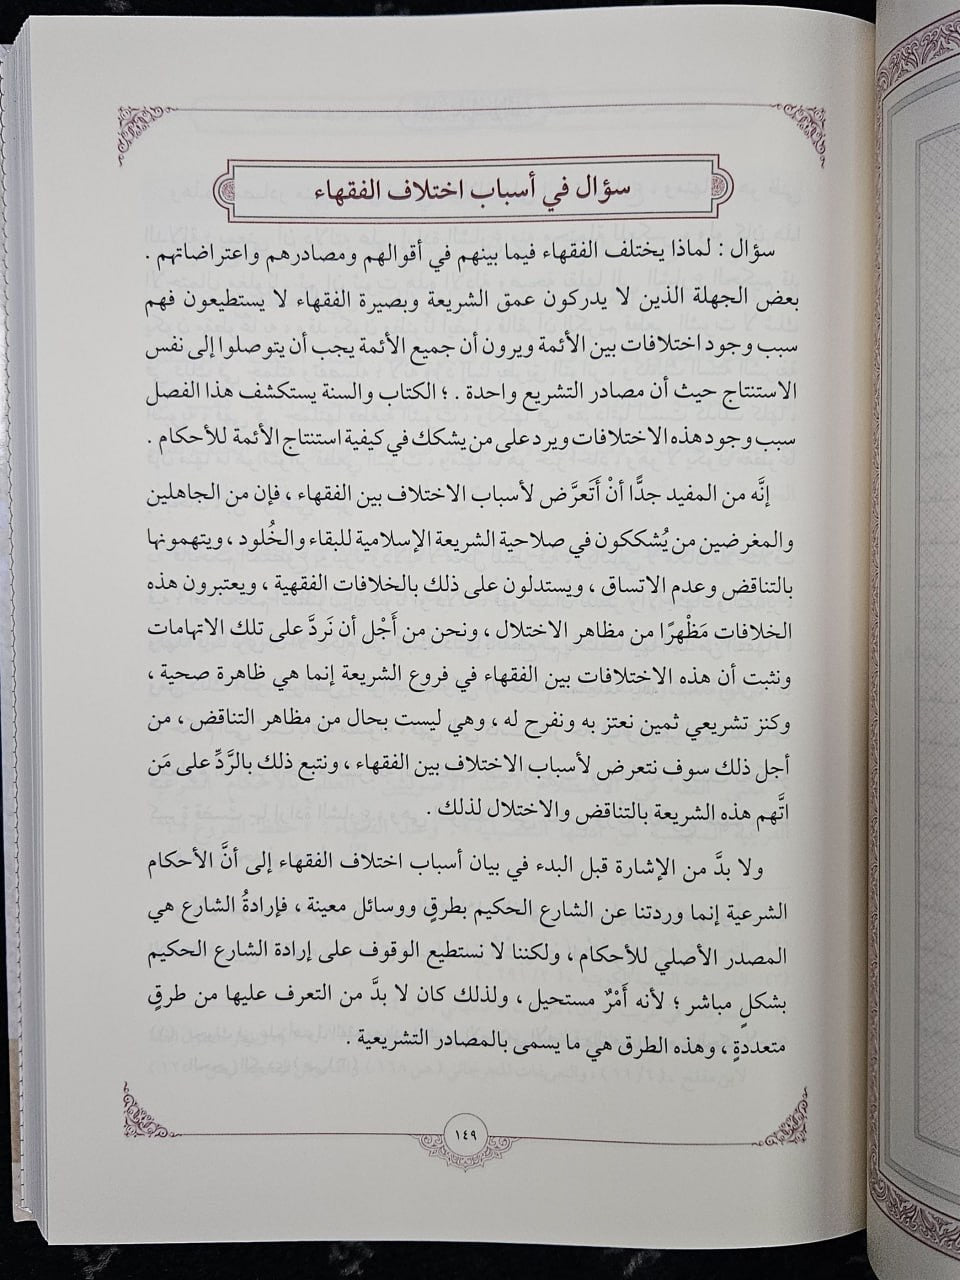 سؤال في أسباب اختلاف الفقهاء
سؤال : لماذا يختلف الفقهاء فيما بينهم في أقوالهم ومصادرهم واعتراضاتهم .
بعض الجهلة الذين لا يدركون عمق الشريعة وبصيرة الفقهاء لا يستطيعون فهم
سبب وجود اختلافات بين الأئمة ويرون أن جميع الأئمة يجب أن يتوصلوا إلى نفس
الاستنتاج حيث أن مصادر التشريع واحدة . ؛ الكتاب والسنة يستكشف هذا الفصل
سبب وجود هذه الاختلافات ويرد على من يشكك في كيفية استنتاج الأئمة للأحكام .
إنَّه من المفيد جدًّا أنْ أَتَعرَّض لأسباب الاختلاف بين الفقهاء ، فإن من الجاهلين
والمغرضين من يُشككون في صلاحية الشريعة الإسلامية للبقاء والخُلود ، ويتهمونها
بالتناقض وعدم الاتساق ، ويستدلون على ذلك بالخلافات الفقهية ، ويعتبرون هذه
الخلافات مَظْهرًا من مظاهر الاختلال ، ونحن من أَجْل أن نَردَّ على تلك الاتهامات
ونثبت أن هذه الاختلافات بين الفقهاء في فروع الشريعة إنما هي ظاهرة صحية ،
وكنز تشريعي ثمين نعتز به ونفرح له ، وهي ليست بحال من مظاهر التناقض ، من
أجل ذلك سوف نتعرض لأسباب الاختلاف بين الفقهاء ، ونتبع ذلك بالرَّدِّ على مَن
اتَّهم هذه الشريعة بالتناقض والاختلال لذلك .
ولا بدَّ من الإشارة قبل البدء في بيان أسباب اختلاف الفقهاء إلى أنَّ الأحكام
الشرعية إنما وردتنا عن الشارع الحكيم بطرقٍ ووسائل معينة ، فإرادةُ الشارع هي
المصدر الأصلي للأحكام ، ولكننا لا نستطيع الوقوف على إرادة الشارع الحكيم
بشكلٍ مباشر ؛ لأنه أَمْرٌ مستحيل ، ولذلك كان لا بدَّ من التعرف عليها من طرقٍ
متعددةٍ ، وهذه الطرق هي ما يسمى بالمصادر التشريعية .
١٤٩